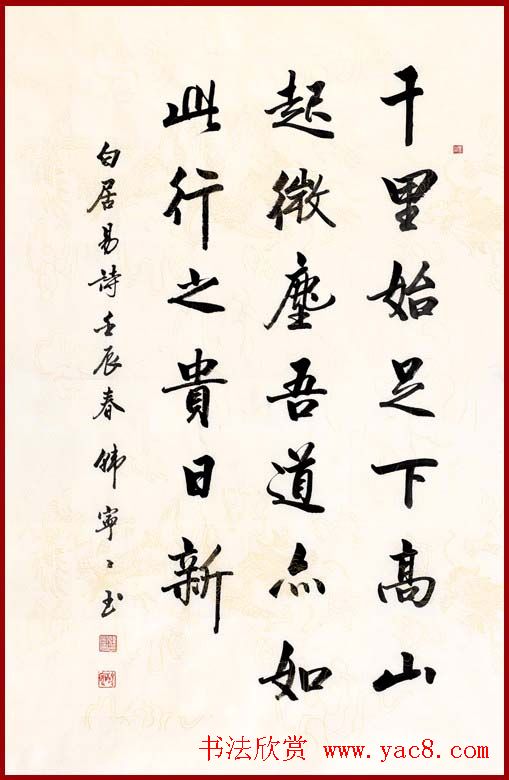 千里始足下高山
起微塵吾道亦如
此行之貴日新
白居易詩壬辰春韩寧寧书
书法欣赏 www.yac8.com